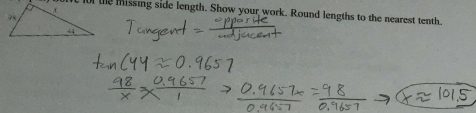 the missing side length. Show your work. Round lengths to the nearest tenth.
Tangent = opposite / adjacent
tan(44 ≈ 0.9657
98/x = 0.9657/1 → 0.9657x/0.9657 = 98/0.9657 → x ≈ 101.5